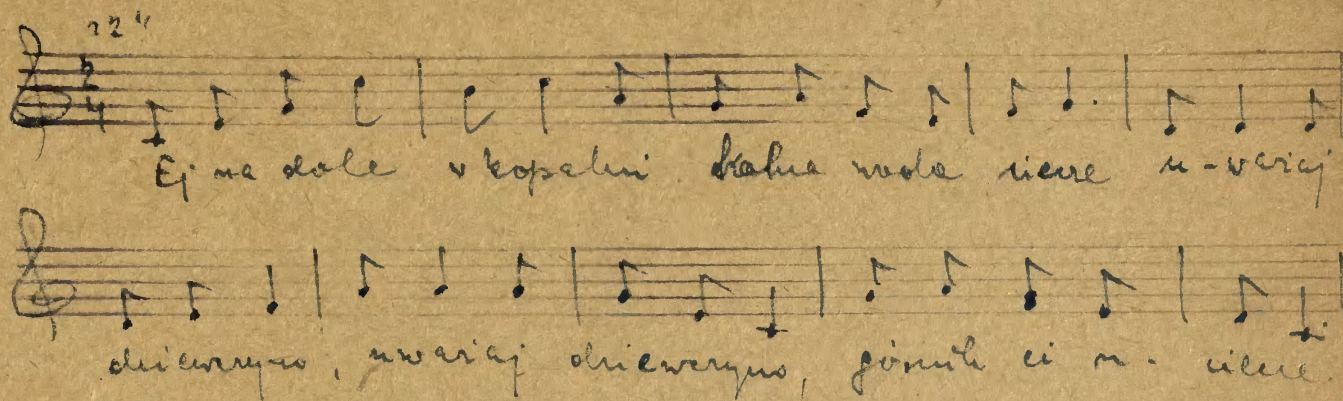 12"
2
4
Ej na dole v kopalni kalna woda ciecze u-ważaj
dziewczyno, uważaj dziewczyno, górnik ci u- ciecze.